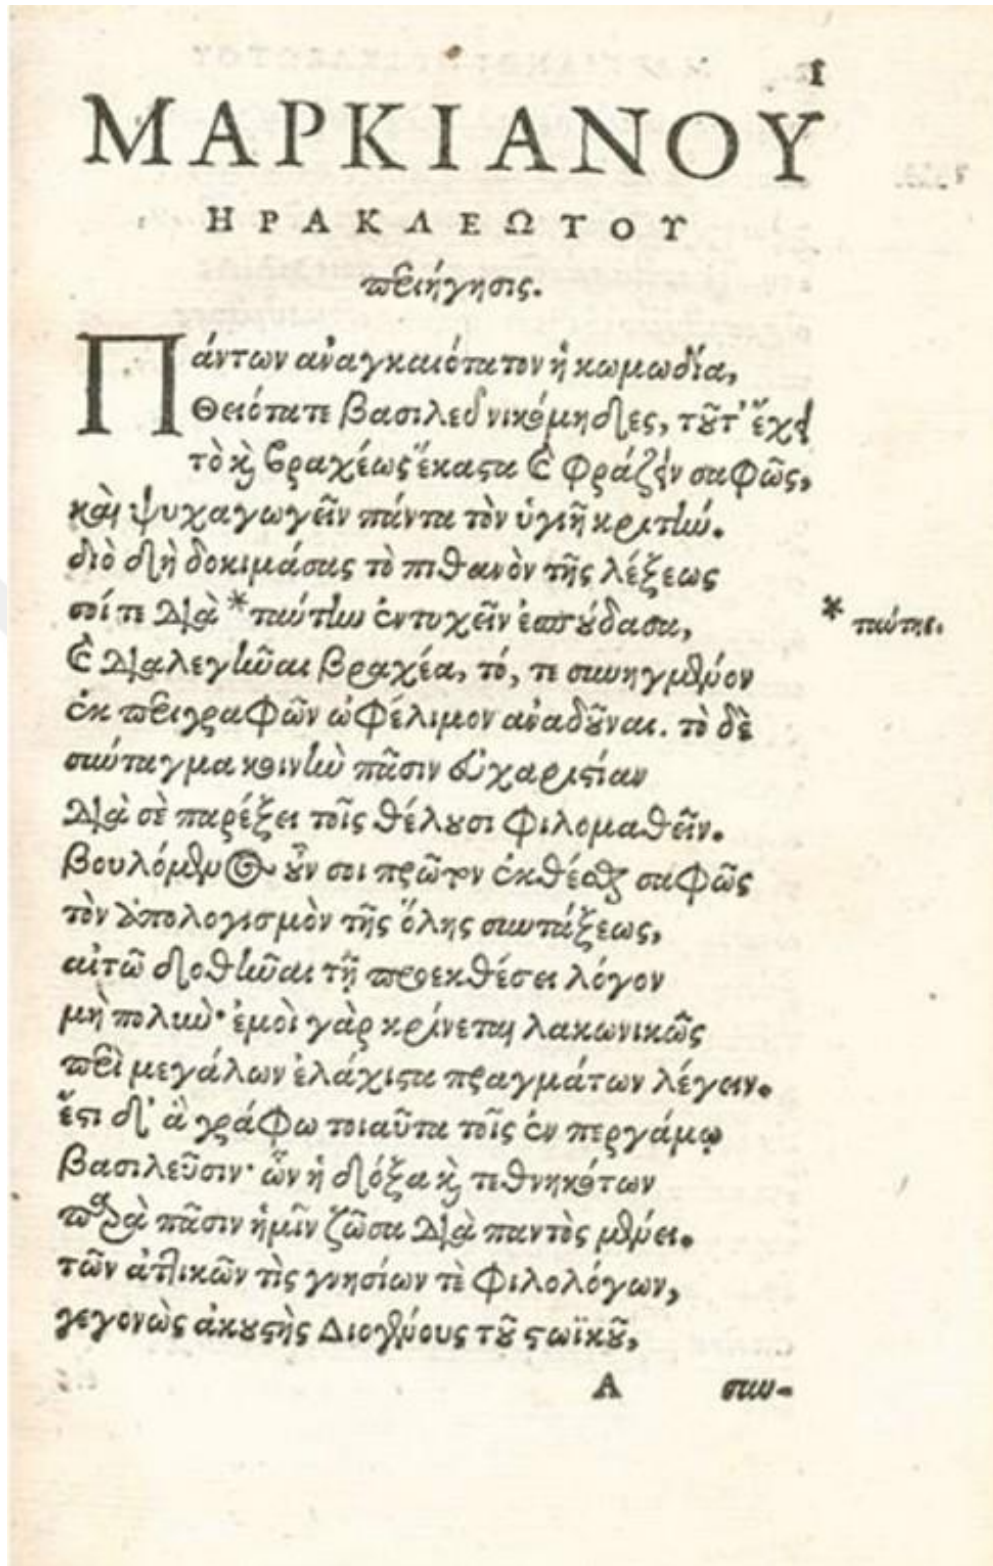 1
ΜΑΡΚΙΑΝΟΥ
ΗΡΑΚΛΕΩΤΟΥ
περιήγησις.
Πάντων ἀναγκαιότατον ἡ κωμωδία,
Θειότατε βασιλεῦ νικόμηδες, τοῦτ' ἔχει
τὸ καὶ βραχέως ἕκαστα καὶ φράζειν σαφῶς,
καὶ ψυχαγωγεῖν πάντα τὸν ὑγιῆ κριτίω.
διὸ δὴ δοκιμάσας τὸ πιθανὸν τῆς λέξεως
σοί τε διὰ *ταύτην ἐντυχεῖν ἐσπούδασα,
* ταύτης.
καὶ διαλεγῆναι βραχέα, τό, τε συνηγμένον
ἐκ περιγραφῶν ὠφέλιμον ἀναδοῦναι. τὸ δὲ
σύνταγμα κοινὴν πᾶσιν εὐχαριστίαν
διὰ σὲ παρέξει τοῖς θέλουσι φιλομαθεῖν.
βουλόμενος οὖν σοι πρῶτον ἐκθέσθαι σαφῶς
τὸν ἀπολογισμὸν τῆς ὅλης συντάξεως,
αἰτῶ δοθῆναι τῇ προεκθέσει λόγον
μὴ πολύν· ἐμοὶ γὰρ κρίνεται λακωνικῶς
περὶ μεγάλων ἐλάχιστα πραγμάτων λέγειν.
ἔστι δ' ἃ γράφω τοιαῦτα τοῖς ἐν περγάμῳ
βασιλεῦσιν· ὧν ἡ δόξα καὶ τεθνηκότων
παρὰ πᾶσιν ἡμῖν ζῶσα διὰ παντὸς μένει.
τῶν ἀττικῶν τὶς γνησίων τὲ φιλολόγων,
γεγονὼς ἀκουστὴς Διογένους τοῦ στωϊκοῦ,
A συν-